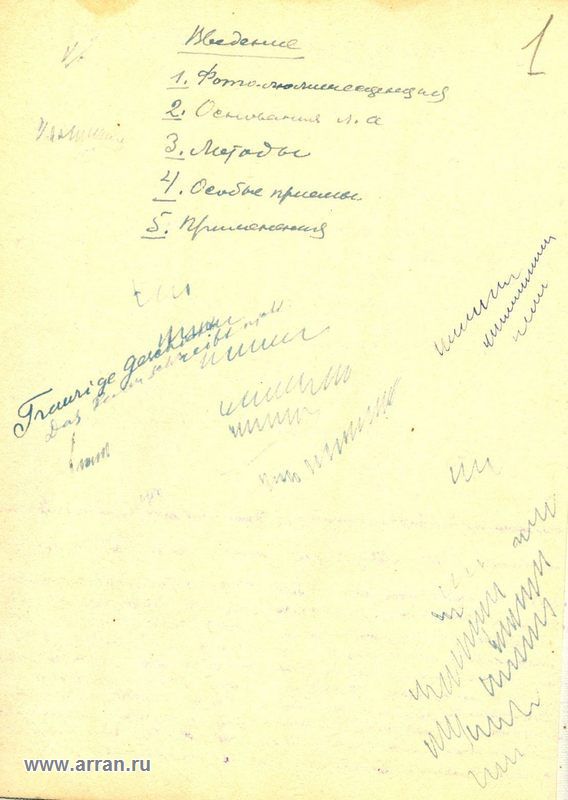 1
Введение
1. Фотолюминесценция
2. Основания л. а
3. Методы
4. Особые приемы
5. Применения
Traurige geschichte
Das schreibt nicht.
www.arran.ru